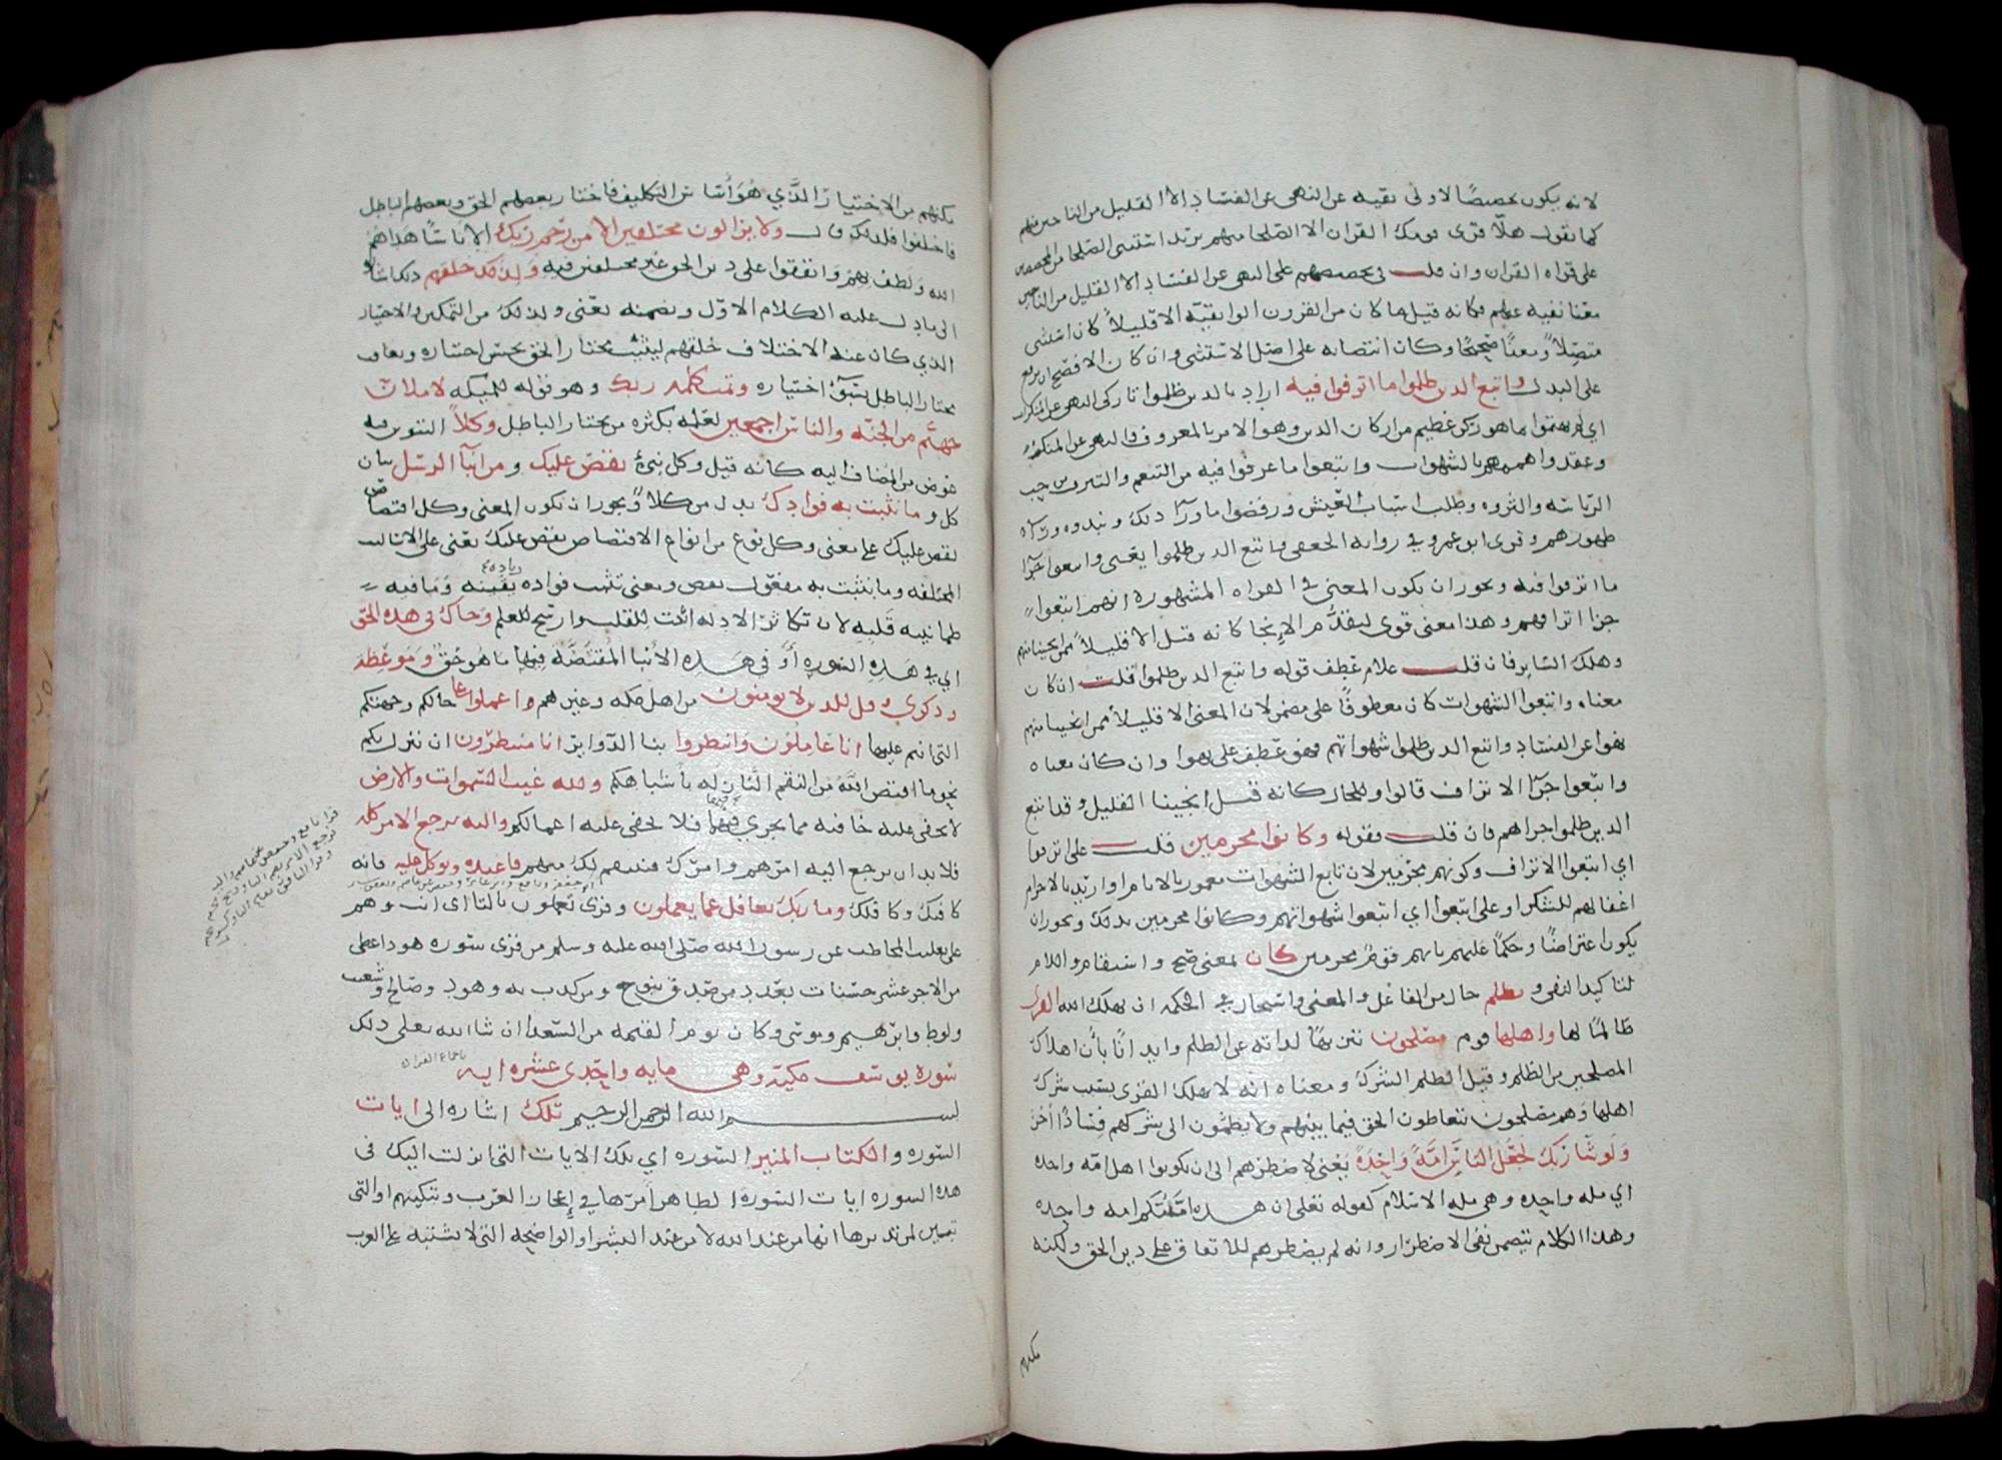 لانه يكون تحضيضًا لاولى بقيه عن النهى عن الفساد الا القليل من الناجين منهم
كما تقول هلا قرى قومك القران الا الصلحا منهم تريد استثنى الصلحا من المحضضين
على قراه القران وان قلت فى تحضيضهم على النهى عن الفساد الا القليل من الناجين
معنا نفيه عنهم فكانه قيل ما كان من القرون الوا بقيّه الا قليلاً كان استثنى
متصلاً ومعنًا صحيحًا وكان انتصابه على اصل الاستثنى وان كان الافصح ان يرفع
على البدل واتبع الدين ظلموا ما اترفوا فيه اراد بالدين ظلموا تاركى النهى عن المنكرات
اي لم يهتموا بما هو ركن عظيم من اركان الدين وهو الامر بالمعروف والنهى عن المنكر
وعقدوا هممهم بالشهوات واتبعوا ما عرفوا فيه من التنعم والتترف من حب
الرياسه والثروه وطلب اسباب العيش ورفضوا ما ورآ دلك ونبدوه ورآ
ظهورهم وقرى ابو عمرو في روايه الجعفى واتبع الدين ظلموا يعنى واتبعوا جزآ
ما اترفوا فيه ويجوز ان يكون المعنى في القراه المشهوره انهم اتبعوا
جزا اترافهم وهدا معنى قوى لتقدُّم الانجا كانه قيل الا قليلاً ممن انجينا منهم
وهلك السايرفان قلت علام عطف قوله واتبع الدين ظلموا قلت ان كان
معناه واتبعوا الشهوات كان معطوفًا على مضمر لان المعنى الا قليلاً ممن انجينا منهم
نهوا عن الفساد واتبع الدين ظلموا شهواتهم فهو عطف على نهوا وان كان معناه
واتبعوا جزآ الاتراف قالوا وللحال كانه قيل انجينا القليل وقد اتبع
الدين ظلموا جزاهم فان قلت فقوله وكانوا مجرمين قلت على اترفوا
اي اتبعوا الاتراف وكونهم مجرمين لان تابع الشهوات مغمور بالاثام او اريد بالاجرام
اغفالهم للشكر او على اتبعوا اي اتبعوا شهواتهم وكانوا مجرمين بدلك ويجوز ان
يكون اعتراضًا وحكمًا عليهم بانهم قوم مجرمين كان بمعنى صح واستقام واللام
لتاكيد النفى وبظلم حال من الفاعل والمعنى واستحال في الحكمه ان يهلك الله القرى
ظالمًا لها واهلها قوم مصلحون تنزيهًا لداته عن الظلم وايدانًا بأن اهلاك
المصلحين من الظلم وقيل الظلم الشرك ومعناه انه لا يهلك القرى بسبب شرك
اهلها وهم مصلحون يتعاطون الحق فيما بينهم ولا يضمّون الى شركهم فسادًا اُخَر
ولو شآ ربك لجعل الناس امّةً واحدةً يعني لاضطرهم الى ان يكونوا اهل امّه واحده
اي مله واحده وهى مله الاسلام كقوله تعلى ان هده امّتُكم امه واحده
وهدا الكلام يتضمن نفى الاضطرار وانه لم يضطرهم للاتفاق على دين الحق ولكنه
مكنهم
مكنهم من الاختيار الَّدي هُوَ أساس التكليف فاختار بعضهم الحق وبعضهم الباطل
فاختلفوا فلدلك قال ولا يزالون مختلفين الا من رّحم ربك الا ناسًا هداهُم
الله ولطف بهم واتفقوا على دين الحق غير مختلفين فيه ولدلك خلقهم دلك اشارة
الى ما دل عليه الكلام الاوّل وتضمنه يعنى ولدلك من التمكين والاختيار
الدي كان عنه الاختلاف خلقهم ليثيب مختار الحق بحسن اختياره ويعاقب
مختار الباطل بسوء اختياره وتمت كلمه ربك وهو قوله للمليكه لاملأن
جهنّم من الجنّه والناس اجمعين لعلمه بكثره من يختار الباطل وكلاًّ التنوين فيه
عوض من المضاف اليه كانه قيل وكل نبىءٍ نقصّ عليك ومن انبآ الرسل بيان
كل وما نثبّت به فوادك بدل من كلاًّ ويجوز ان يكون المعنى وكل اقتصاص
نقص عليك على معنى وكل نوع من انواع الاقتصاص نقص عليك يعنى على الاساليب
المختلفه وما نثبت به مفعول نقص ومعنى تثبيت فواده زياده يقينه وما فيه
طمانينه قلبه لان تكاثر الادله اثبت للقلب وارسخ للعلم وجاك فى هده الحق
اي في هَدِه السّورهِ أوْ في هَدِهِ الأنبا المقتصَّه فيها ما هُو حقٌ وموعظه
ودكرى وقل للدين لا يومنون من اهل مكه وغيرهم واعملوا على حالكم وجهتكم
التى انتم عليها انا عاملون وانتظروا بنا الدّواير انا منتظرون ان ينزل بكم
نحو ما اقتص اللَّه من النقم النازله بأشباهكم ولله غيب السموات والارض
لا تخفى عليه خافيه مما يجري فيهما فلا تخفى عليه اعمالكم واليه يرجع الامر كله
فلا بد ان يرجع اليه امرهم وامرك فينتقم لك منهم فاعبده وتوكل عليه فانه
كافيك وكافلك وما ربك بغافل عما يعملون وقرى تعملون بالتا اى انت وهم
على تغليب المخاطب عن رسول الله صلى الله عليه وسلم من قرى سوره هود اعطى
من الاجر عشر حسنات بعدد من صدق بنوح ومن كدب به وهود وصالح وشعيب
ولوط وابرهيم وموسى وكان يوم القيمه من السّعدا ان شا الله تعلى دلك
سوره يوسف مكيّه وهى مايه واحدى عشره ايه باجماع القرا
بسم الله الرحمن الرحيم تلك اشاره الى ايات
السّوره والكتاب المبين السّوره اي تلك الايات التى انزلت اليك فى
هده السوره ايات السّوره الظاهر أمرها في إعجاز العرب وتبكيتهم او التى
تبين لمن تدبرها انها من عند الله لا من عند البشر او الواضحه التى لا تشتبه على العرب